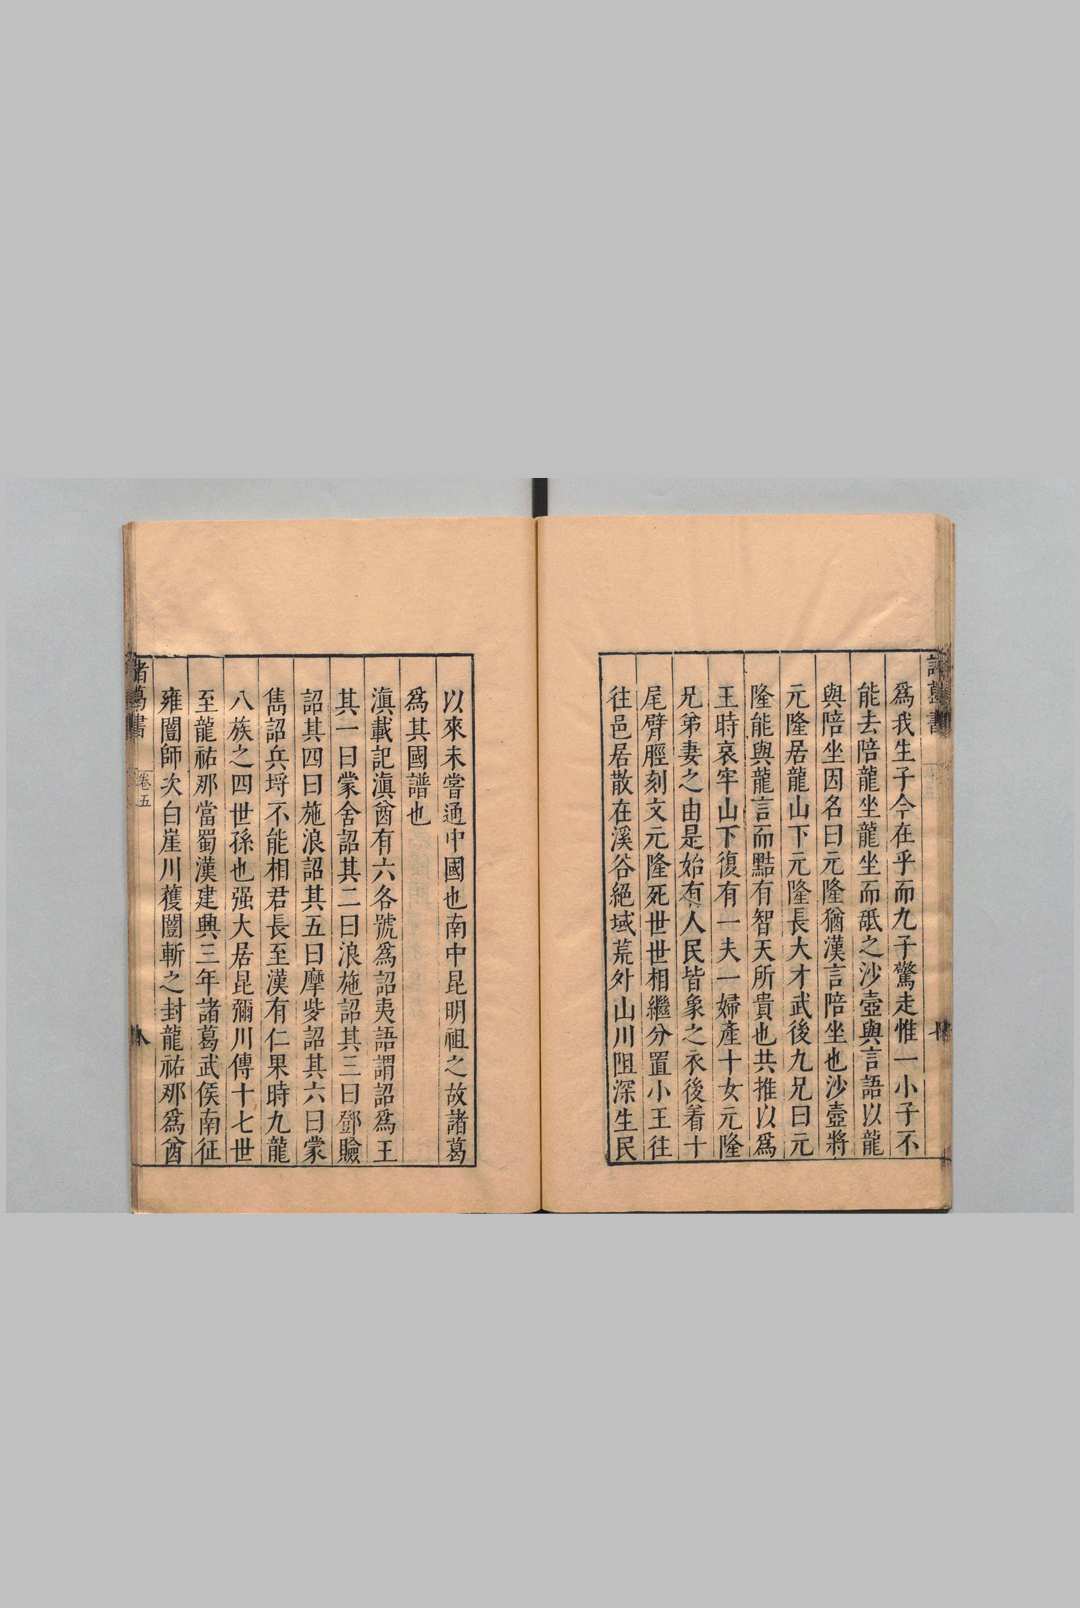 諸葛書
爲我生子今在乎而九子驚走惟一小子不
能去陪龍坐龍坐而舐之沙壺與言語以龍
與陪坐因名曰元隆猶漢言陪坐也沙壺將
元隆居龍山下元隆長大才武後九兄曰元
隆能與龍言而黠有智天所貴也共推以爲
王時哀牢山下復有一夫一婦產十女元隆
兄弟妻之由是始有人民皆象之衣後着十
尾臂脛刻文元隆死世世相繼分置小王往
往邑居散在溪谷絕域荒外山川阻深生民
以來未嘗通中國也南中昆明祖之故諸葛
爲其國譜也
滇載記滇酋有六各號爲詔夷語謂詔爲王
其一曰蒙舍詔其二曰浪施詔其三曰鄧賧
詔其四曰施浪詔其五曰摩些詔其六曰蒙
雋詔兵埒不能相君長至漢有仁果時九龍
八族之四世孫也强大居昆彌川傳十七世
至龍祐那當蜀漢建興三年諸葛武侯南征
雍闓師次白崖川獲闓斬之封龍祐那爲酋
諸葛書
卷五
八